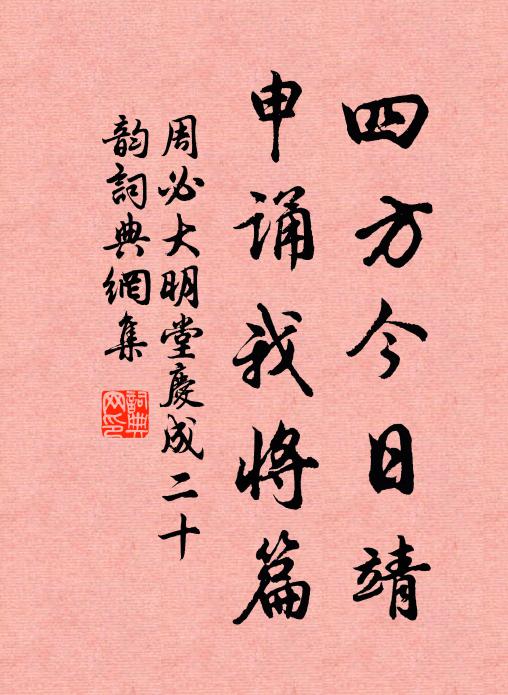 四方今日靖
申诵我将篇
周必大明堂慶成二十
韵詞典網集
詞典
网印